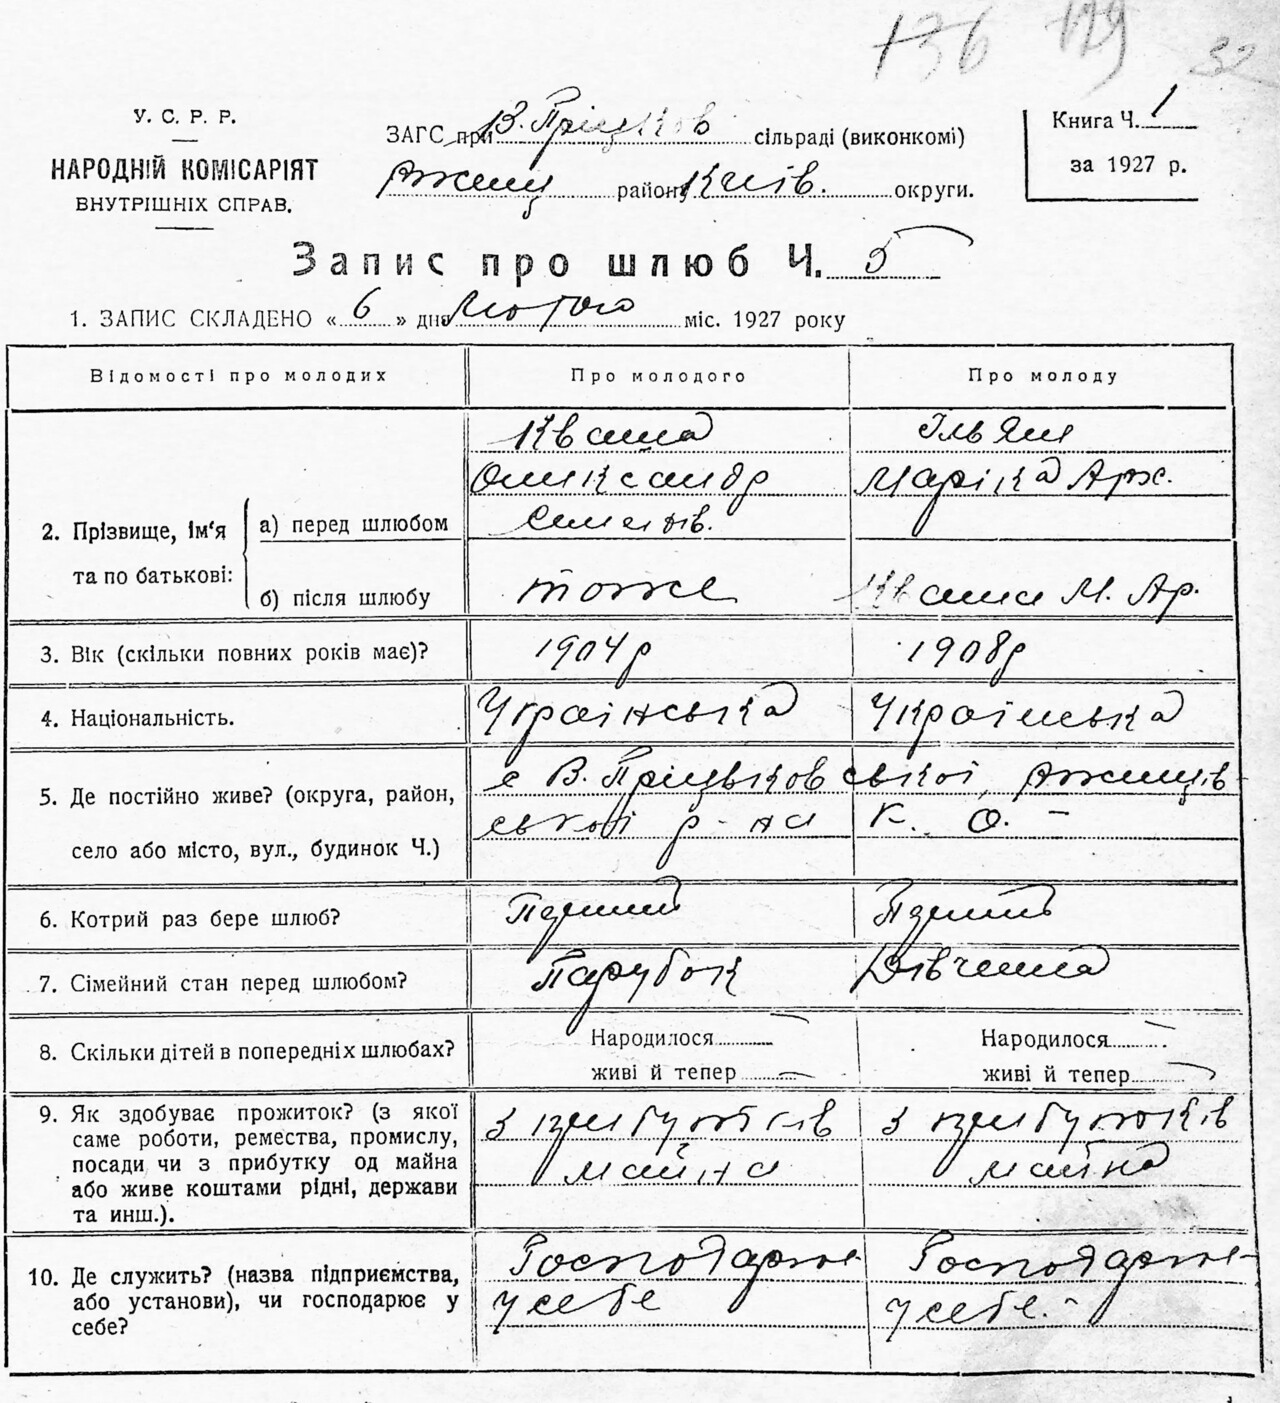 136 119 32
У. С. Р. Р.
НАРОДНІЙ КОМІСАРІЯТ
ВНУТРІШНІХ СПРАВ.
ЗАГС при В. Пріцьков сільраді (виконкомі)
району Київ. округи.
Книга Ч. 1
за 1927 р.
Запис про шлюб Ч. 5
1. ЗАПИС СКЛАДЕНО « 6 » дня Лютого міс. 1927 року
Відомості про молодих
Про молодого
Про молоду
2. Прізвище, ім'я та по батькові:
а) перед шлюбом
Кваша
Олександр
Семенів.
Ільяш
Марійка Арх.
б) після шлюбу
тоже
Кваша М. Ар.
3. Вік (скільки повних років має)?
1904 р
1908 р
4. Національність.
Українська
Українська
5. Де постійно живе? (округа, район,
село або місто, вул., будинок Ч.)
с В. Пріцьковської,
ської р-на К. О. –
6. Котрий раз бере шлюб?
Перший
Перший
7. Сімейний стан перед шлюбом?
Парубок
Дівчина
8. Скільки дітей в попередніх шлюбах?
Народилося —
живі й тепер —
Народилося —
живі й тепер —
9. Як здобуває прожиток? (з якої
саме роботи, ремества, промислу,
посади чи з прибутку од майна
або живе коштами рідні, держави
та инш.).
З прибутків
майна
З прибутоків
майна
10. Де служить? (назва підприємства,
або установи), чи господарює у
себе?
Господарює
у себе
Господарює
у себе. –